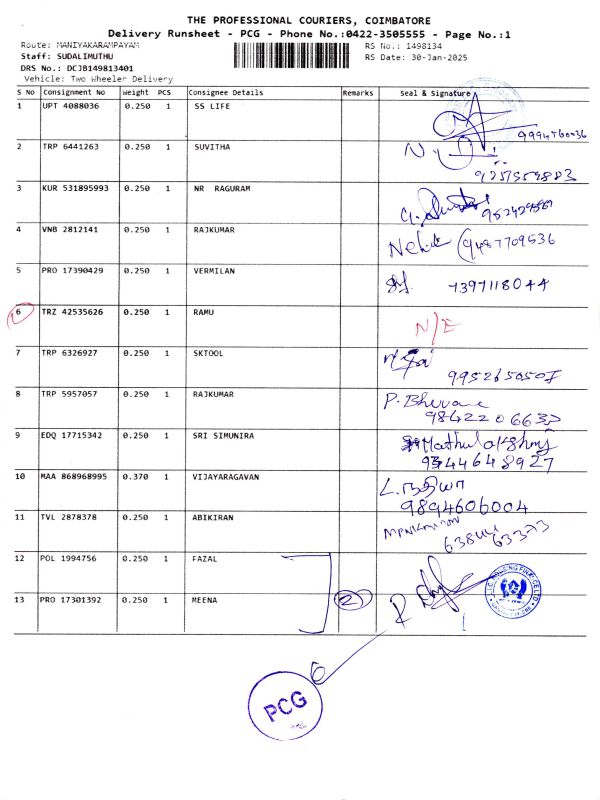 THE PROFESSIONAL COURIERS, COIMBATORE
Delivery Runsheet - PCG - Phone No.:0422-3505555 - Page No.:1
Route: MANIYAKARAMPAYAM RS No.: 1498134
Staff: SUDALIMUTHU RS Date: 30-Jan-2025
DRS No.: DCJB149813401
Vehicle: Two Wheeler Delivery
S No Consignment No Weight PCS Consignee Details Remarks Seal & Signature
1 UPT 4088036 0.250 1 SS LIFE
2 TRP 6441263 0.250 1 SUVITHA
3 KUR 531895993 0.250 1 NR RAGURAM
4 VNB 2812141 0.250 1 RAJKUMAR 9487709536
5 PRO 17390429 0.250 1 VERMILAN 7397118044
6 TRZ 42535626 0.250 1 RAMU N/E
7 TRP 6326927 0.250 1 SKTOOL
8 TRP 5957057 0.250 1 RAJKUMAR P. Bhuvane
9 EDQ 17715342 0.250 1 SRI SIMUNIRA
10 MAA 868968995 0.370 1 VIJAYARAGAVAN 9894606004
11 TVL 2878378 0.250 1 ABIKIRAN
12 POL 1994756 0.250 1 FAZAL
13 PRO 17301392 0.250 1 MEENA 2
PCG